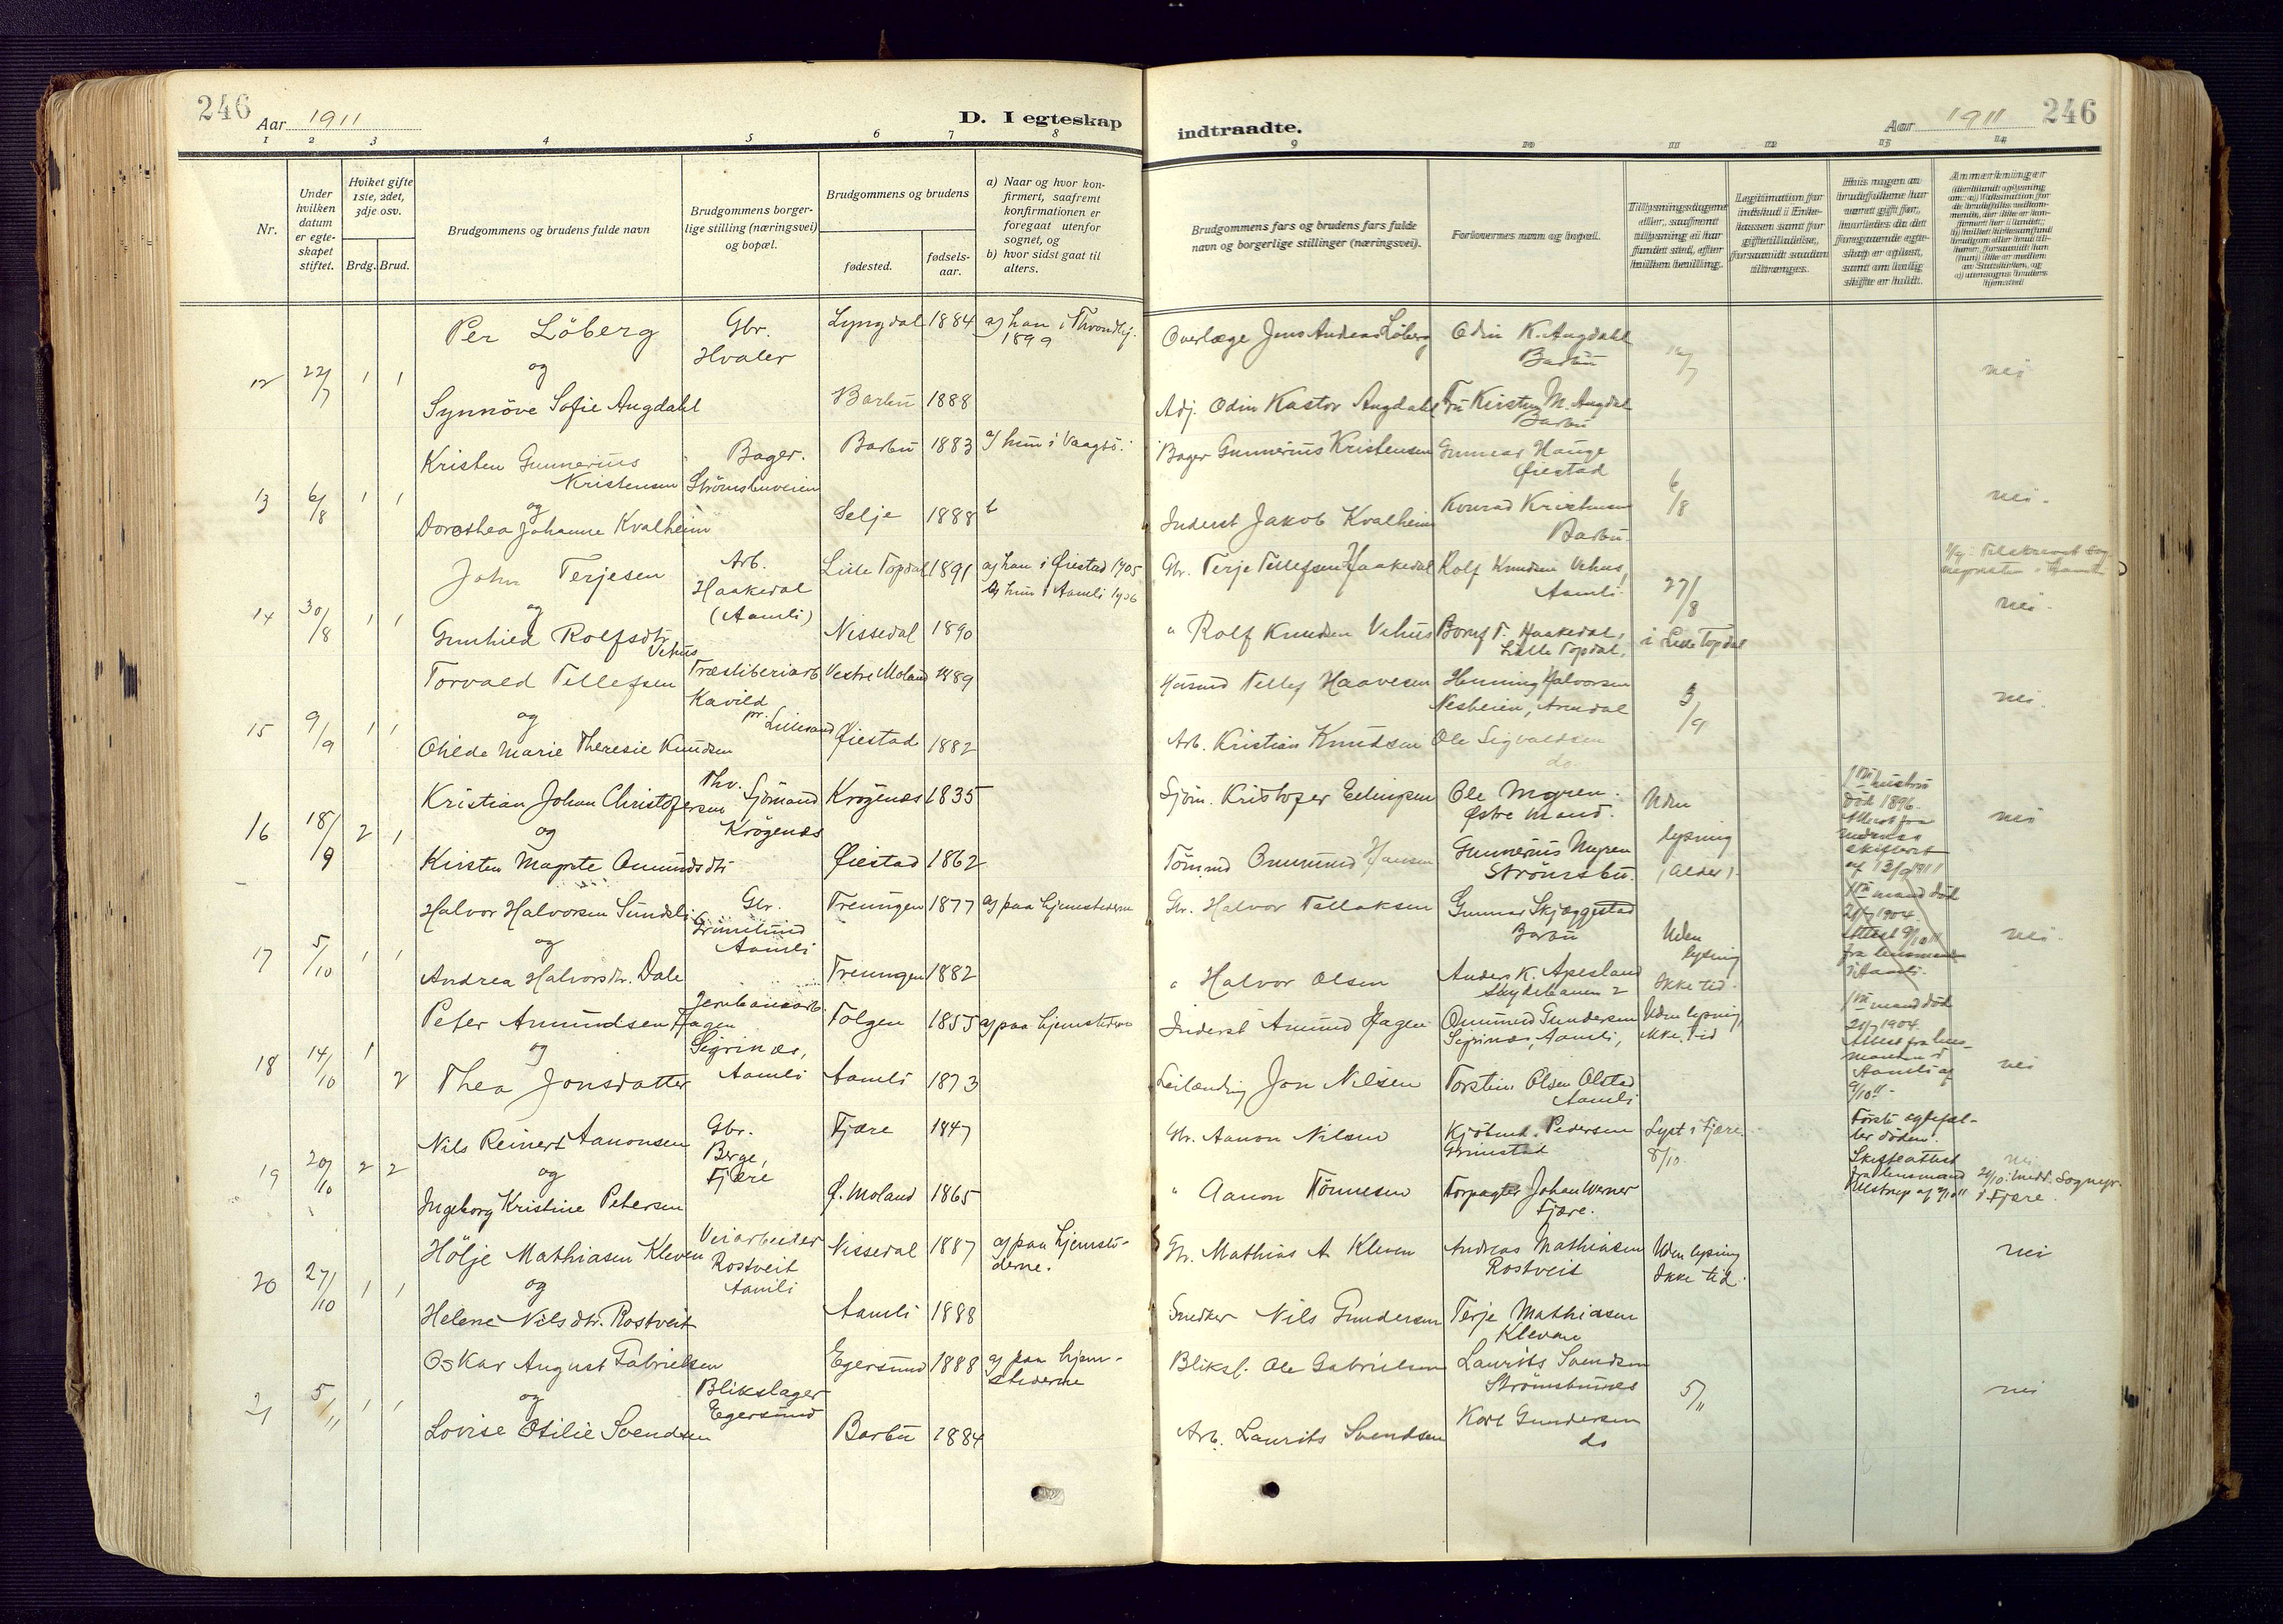 246
Aar 1911
D. I egteskap
indtraadte.
Aar 1911
246
1 2 3 4 5 6 7 8
9 10 11 12 13 14
Nr.
Under hvilken datum er egteskapet stiftet.
Hviket gifte 1ste, 2det, 3dje osv.
Brdg. Brud.
Brudgommens og brudens fulde navn
Brudgommens borgerlige stilling (næringsvei) og bopæl.
Brudgommens og brudens
fødested.
fødselsaar.
a) Naar og hvor konfirmert, saafremt konfirmationen er foregaat utenfor sognet, og
b) hvor sidst gaat til alters.
Brudgommens fars og brudens fars fulde navn og borgerlige stillinger (næringsvei).
Forlovernes navn og bopæl.
Tillysningsdagene eller, saafremt tillysning ei har fundet sted, efter hvilken bevilling.
Legitimation for indskud i Enkekassen samt for giftetilladelse, forsaavidt saadan tiltrænges.
Hvis nogen av brudefolkene har været gift før, hvorledes da det foregaaende egteskap er opløst, samt om lovlig skifte er holdt.
Anmerkninger
12 22/7 1 1
Per Löberg
og
Synnöve Sofie Augdahl
Gbr.
Hvaler
Lyngdal 1884
Barbu 1888
a) han i Throndhj. 1899
Overlæge Jens Andreas Löberg
Adj. Odin Kastor Augdahl
Odin K. Augdahl
Barbu
Fru Kirsten M. Augdal
Barbu
nei
13 6/8 1 1
Kristen Gunnerius
Kristensen
og
Dorothea Johanne Kvalheim
Bager.
Strömsbuveien
Barbu 1883
Selje 1888
a) hun i Vaagsö.
Bager Gunnerius Kristensen
Inderst Jakob Kvalheim
Gunnar Hauge
Øiestad
Konrad Kristensen
Barbu.
6/8
nei.
14 30/8 1 1
John Terjesen
og
Gunhild Rolfsdtr.
Vehus
Arb.
Haakedal
(Aamli)
Lille Topdal 1891
Nissedal 1890
a) han i Øiestad 1905
a) hun i Aamli 1906
Gbr. Terje Tellefsen Haakedal
" Rolf Knudsen Vehus
Rolf Knudsen Vehus,
Aamli
T. Haakedal,
Lille Topdal.
27/8
i Lille Topdal
nei.
15 9/9 1 1
Torvald Tellefsen
og
Olilde Marie Theresie Knudsen
Træsliberiarb
Kavild
pr. Lillesand
Vestre Moland 1889
Øiestad 1882
Husmd Tellef Haavesen
Arb. Kristian Knudsen
Henning Halvorsen
Nesheien, Arendal
Ole Sigvaldsen
do.
3/9
nei.
16 18/9 2 1
Kristian Johan Christofersen
og
Kirsten Magrete Omundsdtr
Fhv. Sjömand
Krögenes
Krögenes 1835
Øiestad 1862
Sjöm. Kristofer Ellingsen
Tömmd Ommund Hansen
Ole Myren.
Østre
Gunnerius Myren
Strömsbu.
Uden
lysning
(Alder).
1ste hustru
död 1896.
Attest fra
skifteret
af 13/9 1911
nei
17 5/10 1 1
Halvor Halvorsen Sundsli
og
Andrea Halvorsdtr. Dale
Gbr.
Grimlund
Aamli
Treungen 1877
Treungen 1882
a) paa hjemstederne
Gbr. Halvor Tellaksen
" Halvor Olsen
Gunnar Skjæggestad
Barbu
Anders K. Apesland
Skydebanen 2
Uden
lysning
Ikke tid.
1ste mand död
21/7 1904.
Attest 9/10 11
fra lensmanden
i Aamli.
nei.
18 14/10 1 2
Peter Amundsen Hagen
og
Thea Jonsdatter
Jernbanearb.
Sigrinæs,
Aamli
Tolgen 1855
Aamli 1873
a) paa hjemstederne
Inderst Amund Hagen
Leilænding Jon Nilsen
Ommund Gundersen
Sigrinæs, Aamli,
Torstein Olsen Olstad
Aamli
Uden lysning,
ikke tid
1ste mand död
21/7 1904.
Attest fra lensmanden i
Aamli af
9/10 11.
nei
19 20/10 2 2
Nils Reinert Aanonsen
og
Ingeborg Kristine Petersen
Gbr.
Berge,
Fjære
Fjære 1847
Ø. Moland 1865
Gbr. Aanon Nilsen
" Aanon Tönnesen
Kjöbmd. Pedersen
Grimstad
Forpagter Johan Werner
Fjære.
Lyst i Fjære.
8/10.
Förste egtefæller döden.
Skifteattest
fra lensmand
nei
21/10 medd. Sognepr.
i Fjære.
20 27/10 1 1
Hölje Mathiasen Kleven
og
Helene Nilsdtr. Rostveit
Veiarbeider
Rostveit
Aamli
Nissedal 1887
Aamli 1888
a) paa hjemstederne.
Gbr. Mathias A Kleven
Snedker Nils Gundersen
Andreas Mathiasen
Rostveit
Terje Mathiasen
Kleven
Uden lysning
Ikke tid.
nei
21 5/11 1 1
Oskar August Gabrielsen
og
Lovise Otilie Svendsen
Blikslager
Egersund
Egersund 1888
Barbu 1884
a) paa hjemstederne
Bliksl. Ole Gabrielsen
Arb. Laurits Svendsen
Laurits Svendsen
Strömsbunes
Karl Gundersen
do
5/11
nei